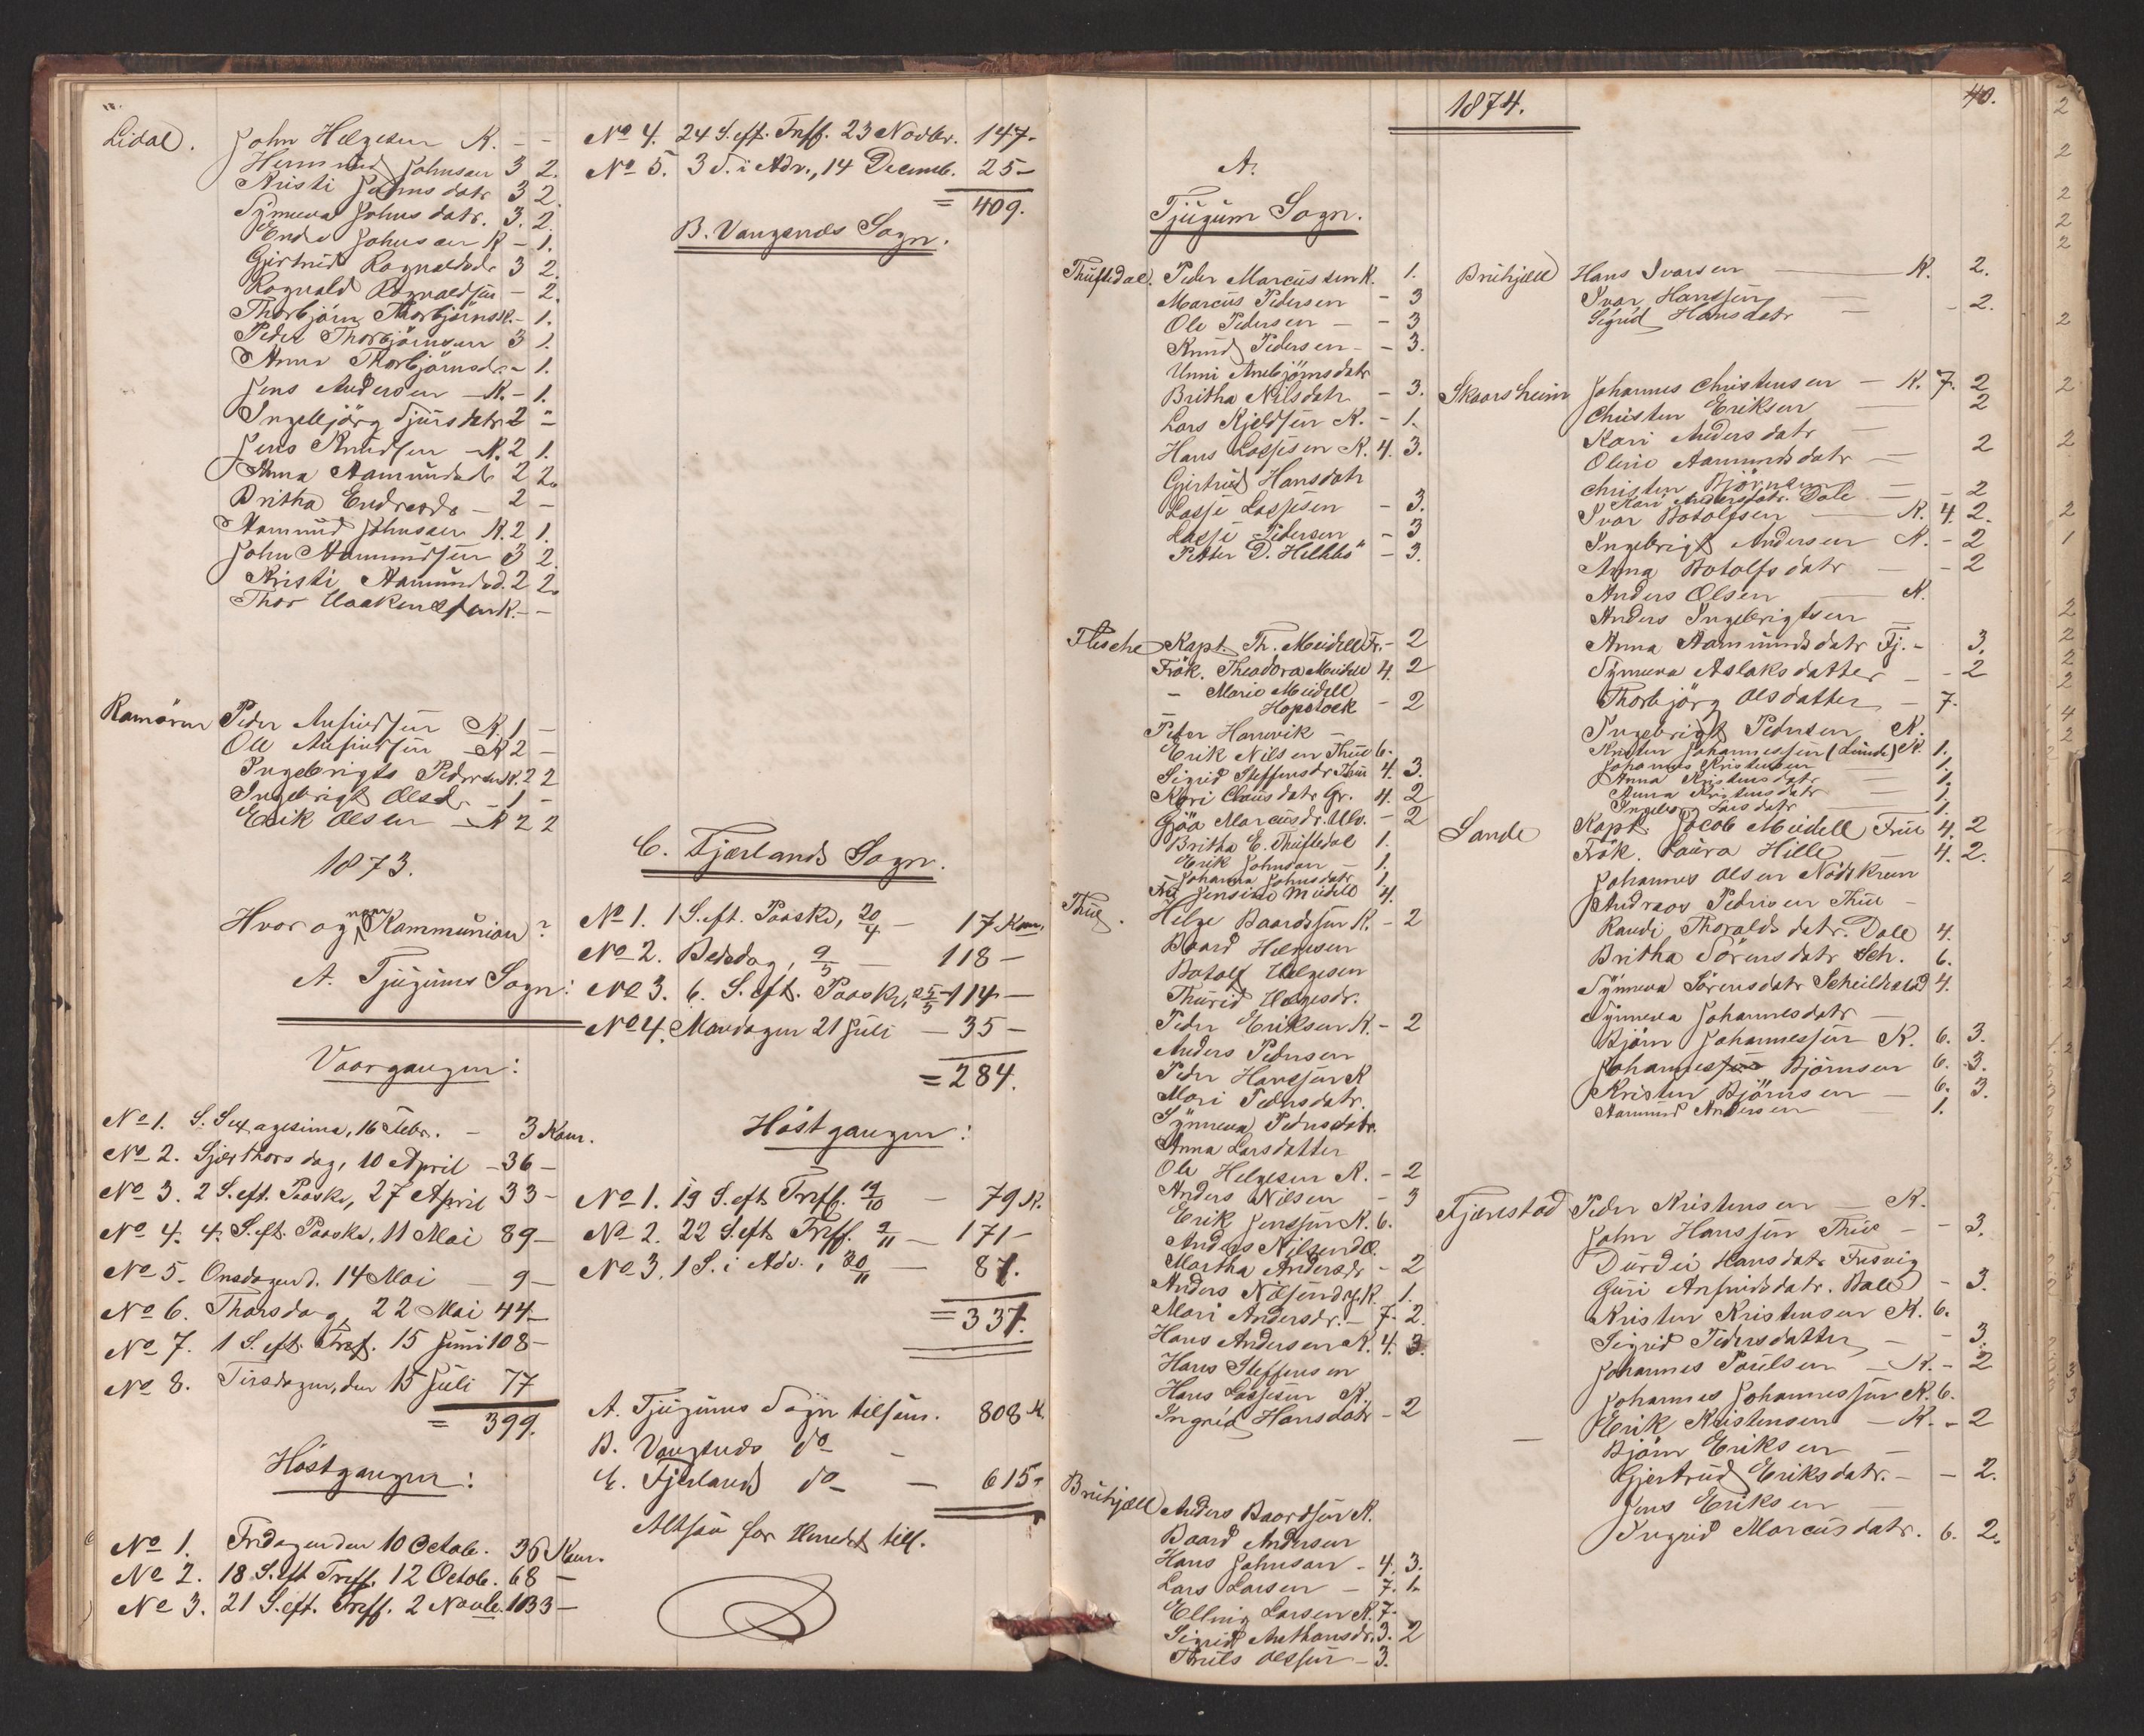 Lidal. John Helgesen K. - -
Hermund Johnsen 3 2.
Kristi Johnsdatr 3 2.
Synneva Johnsdatr. 3. 2.
Endre Johnsen K - 1.
Gjertrud Rognaldsdr 3 2.
Rognald Rognaldsen - 2.
Thorbjörn Thorbjörns. K. - 1.
Peder Thorbjörnsen 3 1.
Anna Thorbjörnsdr. - 1.
Jens Andersen - K. - 1.
Ingebjörg Sjursdatr 2 -
Jens Knudsen - K. 2 1.
Anna Aamundsdr 2 2.
Britha Endresdr - 2 -
Aamund Johnsen K. 2 1.
John Aamundsen 3 2.
Kristi Aamundsd. 2 2.
Thor Haakensen K. - -
Ramören Peder Anfindsen K. 1 -
Ole Anfindsen - K 2 -
Ingebrigt Pedersen K. 2 2
Ingebrigt Olsdr. - 1 -
Erik Olsen - K 2 2
1873.
Hvor og naar Kommunion?
A. Tjugums Sogn:
Vaargangen:
No 1. S. Sexagesima, 16 Febr. - 3 Kom.
No 2. Skjærthorsdag, 10 April - 36 -
No 3. 2 S. eft. Paaske, 27 April 33 -
No 4. 4. S. eft. Paaske, 11 Mai 89 -
No 5. Onsdagen d. 14 Mai - 9 -
No 6. Thorsdag, 22 Mai 44 -
No 7. 1 S. eft. Tref. 15 Juni 108 -
No 8. Tirsdagen, den 15 Juli 77
= 399.
Höstgangen:
No 1. Fredagen den 10 Octob. 36 Kom.
No 2. 18 S. eft Treff. 12 Octob. 68 -
No 3. 21 S. eft. Treff. 2 Novb. 133 -
No 4. 24 S. eft. Treff. 23 Novbr. 147 -
No 5. 3 S. i Adv., 14 Decemb. 25 -
= 409.
B. Vangsnæs Sogn.
C. Fjærlands Sogn.
No 1. 1 S. eft. Paaske, 20/4 - 17 Kom.
No 2. Bededag, 9/5 - 118 -
No 3. 6. S. eft. Paaske, 25/5 - 114 -
No 4. Mandagen 21 Juli - 35 -
= 284.
Höstgangen:
No 1. 19 S. eft Treff. 19/10 - 79 K.
No 2. 22 S. eft Treff. 9/11 - 171 -
No 3. 1 S. i Adv., 30/11 - 87.
= 337.
A. Tjugums Sogn tilsam. 808 K.
B. Vangsnæs do -
C. Fjærlands do - 615 -
Altsaa for Herredet till.
1874. 40.
A.
Tjugum Sogn.
Thuftedal. Peder Marcussen K. 1.
Marcus Pedersen - 3
Ole Pedersen - - 3
Knud Pedersen - - 3.
Unni Arnbjörnsdatr
Britha Nilsdatr - 3.
Lars Kjeldsen K. - 1.
Hans Lassesen K. 4. 3.
Gjertrud Hansdatr
Lasse Lassesen - 3.
Lasse Pedersen - 3
Petter D. - 3.
Flesche Kapt. Th. Meidell Fr. - 2
Frök. Theodora Meidell 4. 2
- Marie Meidell
Hopstock - 2
Peter Hamvik -
Erik Nilsen Thue 6.
Sigrid Steffensdr Thue 4. 3.
Kari Clausdatr Gr. 4. 2
Gjöa Marcusdr. Ulv. - 2
Britha E. Thuftedal 1.
Erik Johnsen - 1.
Johanna Johnsdatr 1.
Frk Jensine Meidell 4.
Thue. Helge Baardssen K. - 2
Baard Helgesen
Botolf Helgesen
Thurid Helgesdr.
Peder Eriksen K. - 2
Anders Pedersen
Peder Hanssen K
Mari Pedersdatr.
Synneva Pedersdatr.
Anna Larsdatter
Ole Helgesen K. - 2
Anders Nilsen - 3
Erik Jenssen K. 6.
Anders Nilsen d. Æ.
Martha Andersdr - 2
Anders Nilsen d. y. K. 1.
Mari Andersdr. - 7. 2.
Hans Andersen K. 4. 3.
Hans Steffensen
Hans Lassesen K.
Ingrid Hansdatr - 2
Bruhjell Anders Baardsen K.
Baard Andersen
Hans Johnsen - 4. 3.
Lars Larsen - 7. 1.
Elling Larsen K. 7.
Sigrid Anthonsdr. 3. 2
Thruls Olssen - 3.
Bruhjell Hans Ivarsen K. 2.
Ivar Hanssen
Sigrid Hansdatr - - 2.
Skaarsheim Johannes Christensen - K. 7. 2
Christen Eriksen - 2
Kari Andersdatr -
Oline Aamundsdatr - 2
Christen Björnsen
Kari Andersdatr. Dale - - 2
Ivar Botolfsen K. 4. 2.
Ingebrigt Andersen K. - 2
Anna Botolfsdatr - - 2
Anders Olsen K.
Anders Ingebrigtsen
Anna Aamundsdatr Fj. - 3.
Synneva Aslaksdatter - - 2
Thorbjörg Olsdatter - 7.
Ingebrigt Pedersen K.
Kristen Johannessen (Lunde) K. 1.
Johannes Kristensen 1.
Anna Kristensdatr - 1.
Anna Kristensdatr 1.
Ingeborg Larsdatr 1.
Sande Kapt. Jacob Meidell Frue 4. 2
Frök. Laura Hille - 4. 2.
Johannes Olsen Nödtkrun
Andreas Pedersen Thue -
Randi Thoraldsdatr. Dale 4.
Britha Sörensdatr Sch. 6.
Synneva Sörensdatr Scheildestad 4.
Synneva Johannesdatr -
Björn Johannessen K. 6. 3.
Johannes Björnsen 6. 3.
Kristen Björnsen - 6. 3.
Aamund Andersen 1.
Fjærestad Peder Kristensen K.
John Hanssen Thue - - 3.
Durdei Hansdatr Fresvig
Guri Anfindsdatr. Bale - 3.
Kristen Kristensen K. 6.
Sigrid Pedersdatter - - 3.
Johannes Paulsen - K. - 2
Johannes Johannessen K. 6.
- Erik Kristensen - K. - 2
Björn Eriksen -
Gjertrud Eriksdatr. - - 2.
Jens Eriksen -
Ingrid Marcusdatr. 6. 2.